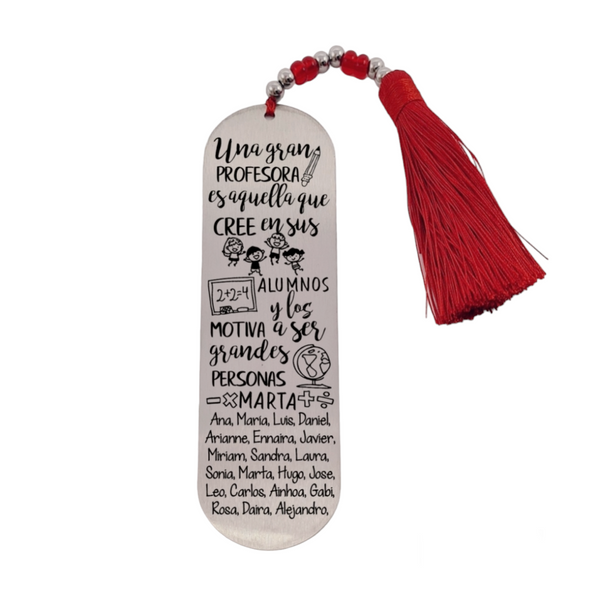 Una gran
PROFESORA
es aquella que
CREE en sus
ALUMNOS
2+2=4
y los
MOTIVA a ser
grandes
PERSONAS
-×MARTA+÷
Ana, Maria, Luis, Daniel,
Arianne, Ennaira, Javier,
Miriam, Sandra, Laura,
Sonia, Marta, Hugo, Jose,
Leo, Carlos, Ainhoa, Gabi,
Rosa, Daira, Alejandro,